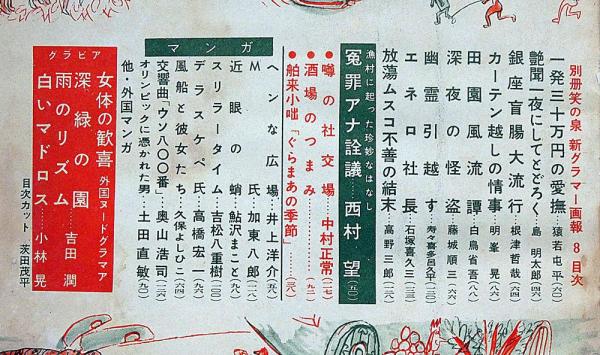 別冊笑の泉 新グラマー画報 8 目次
一発三十万円の愛撫…猿若屯平(六〇)
艶聞一夜にしてとどろく…島明太郎(四六)
銀座盲腸大流行…根津哲哉(六四)
カーテン越しの情事…明峯晃(六六)
田園風流譚…白鳥省吾(八八)
深夜の怪盗…藤城順三(六六)
幽霊引越す…寿々喜多呂九平(一二〇)
エネロ社長…石塚喜久三(一二三)
放蕩ムスコ不善の結末…高野三郎(一三〇)
漁村に起った珍妙なはなし
冤罪アナ詮議……西村望(五〇)
●噂の社交場…中村正常(一二七)
●酒場のつまみ……(九二)
●舶来小咄「ぐらまあの季節」……(三八)
マンガ
ヘンな広場…井上洋介(五九)
M氏…加東八郎(一二八)
近眼の蛸…鮎沢まこと(七九)
スリラータイム…吉松八重樹(一二〇)
デラスケベ氏…高橋宏一
風船と彼女たち…久保よしひこ(六四)
交響曲「ウソ八〇〇番」…奥山浩司(一二六)
オリンピックに憑かれた男…土田直敏(九〇)
他・外国マンガ
グラビア
女体の歓喜 外国ヌードグラマア
深緑の園……吉田潤
雨のリズム
白いマドロス…小林晃
目次カット 茨田茂平